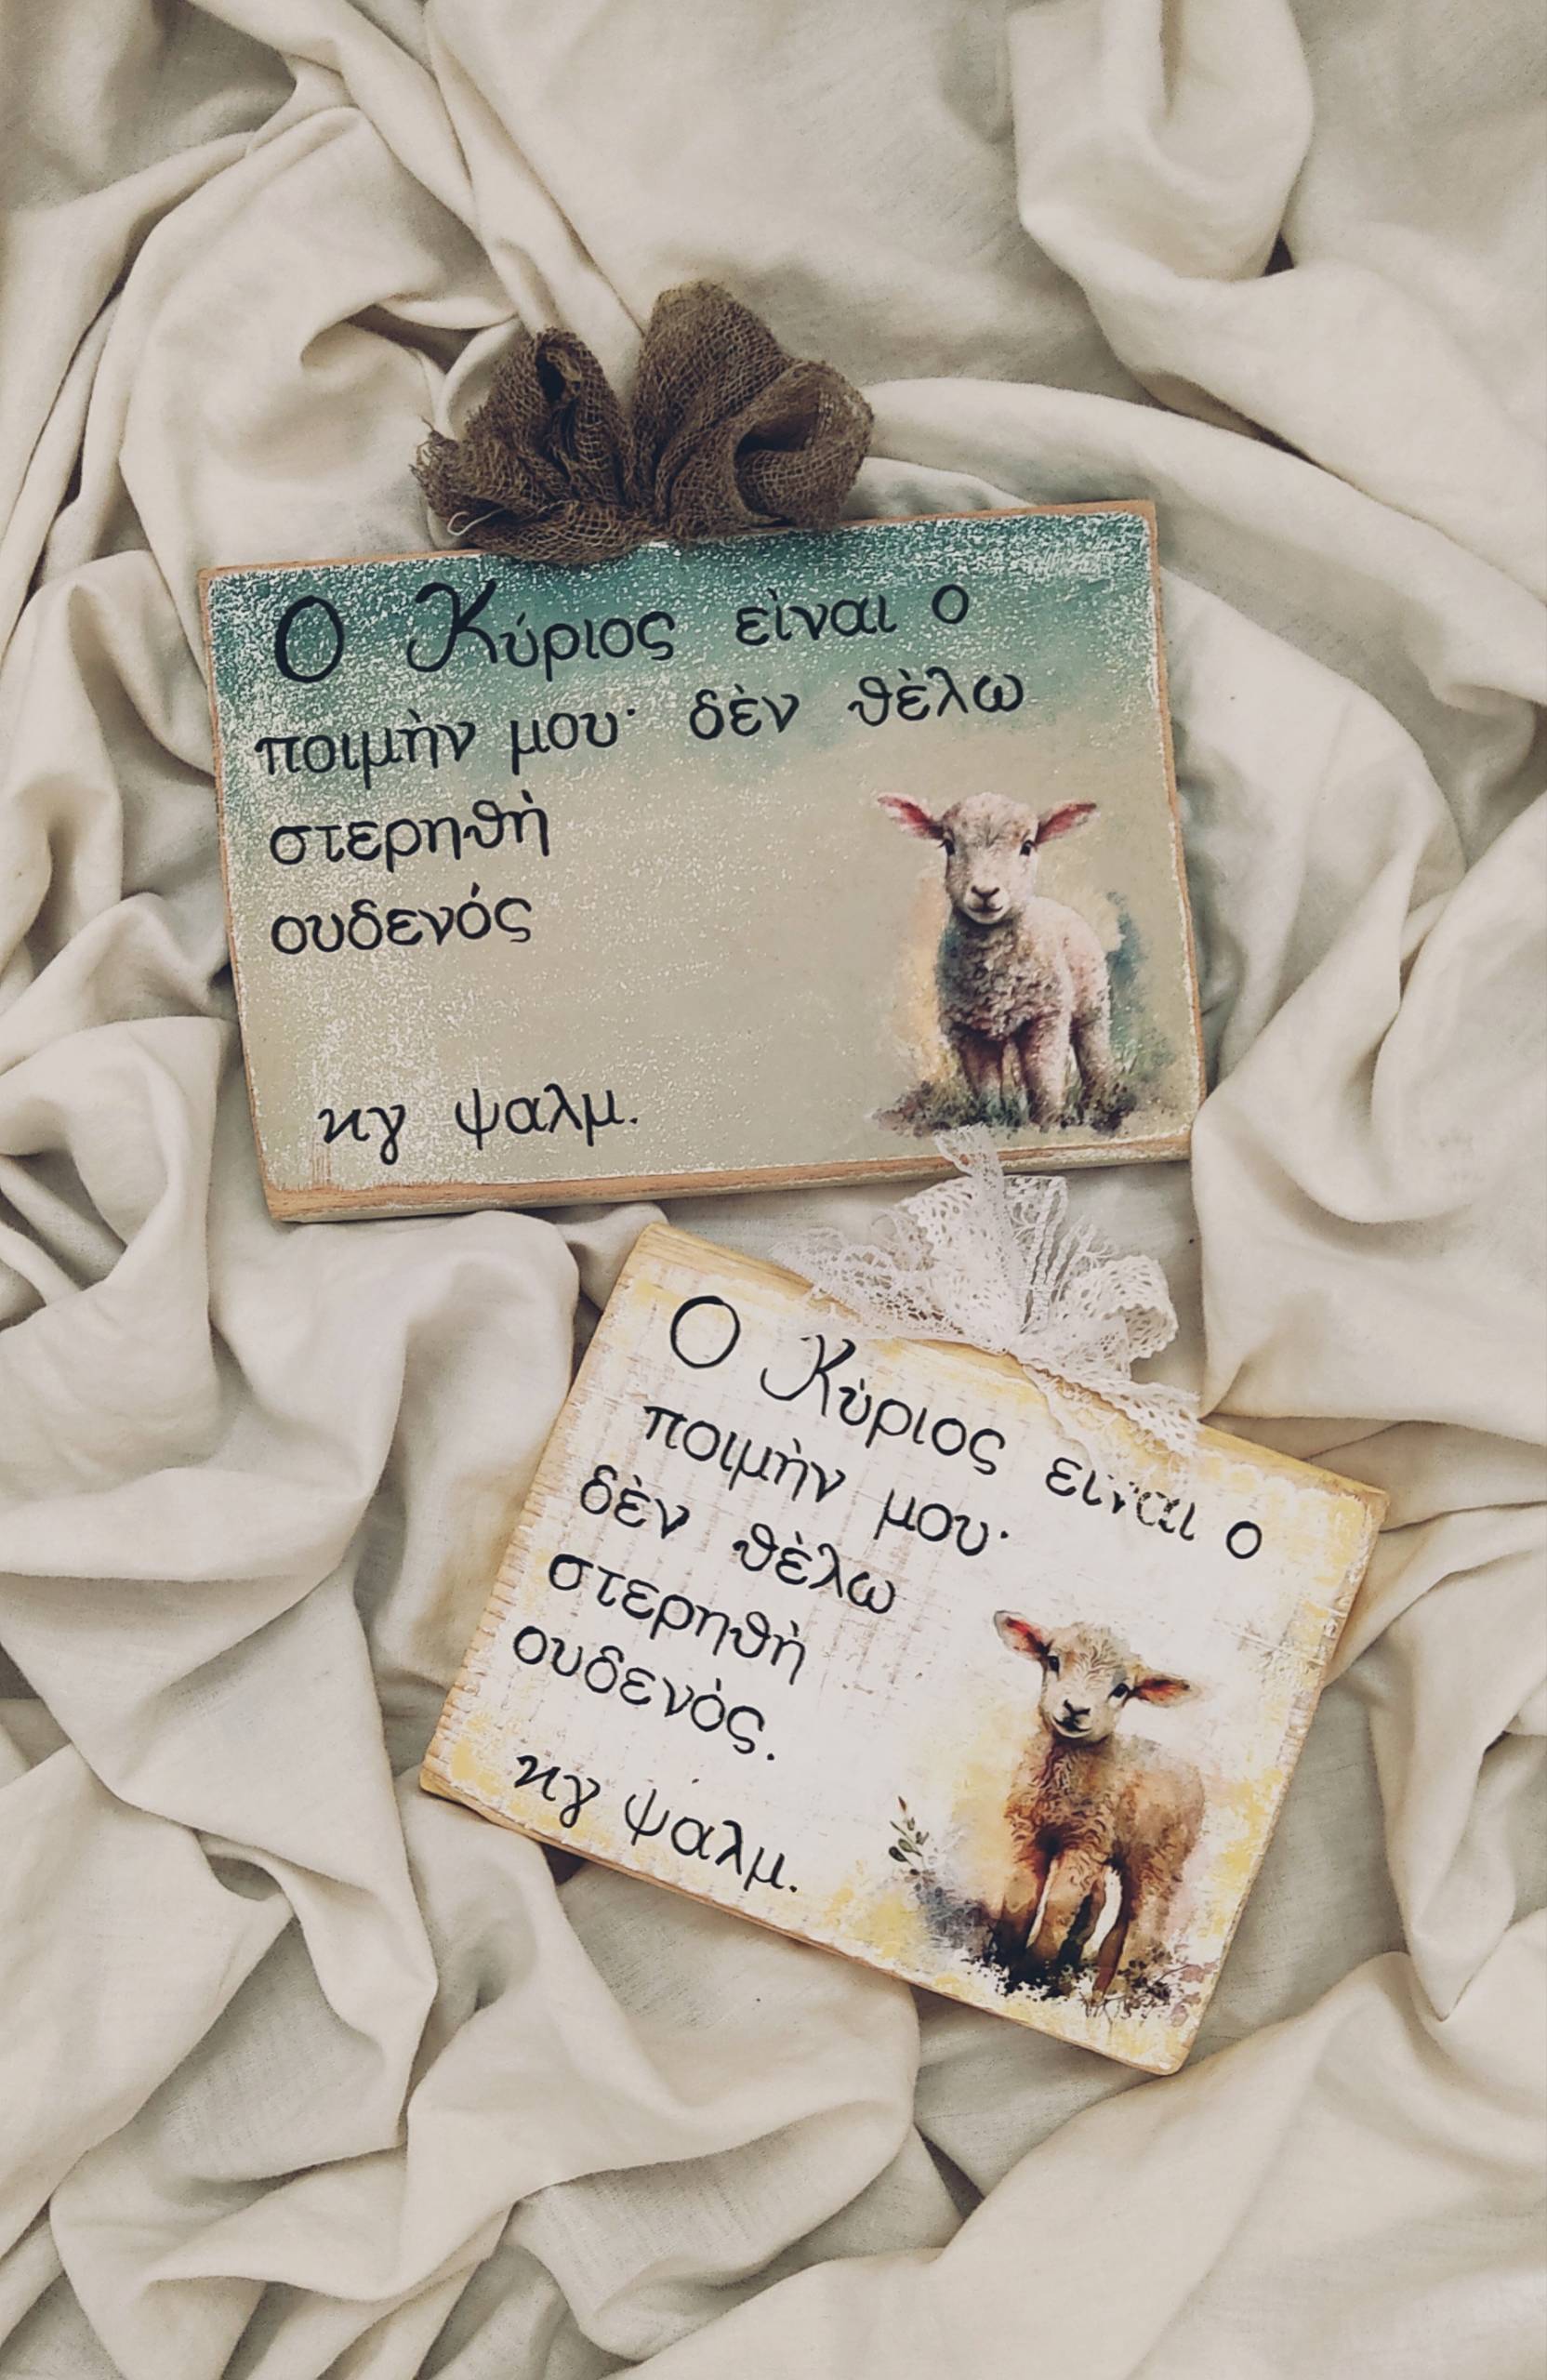 Ο Κύριος εὶναι ο
ποιμὴν μου· δὲν θὲλω
στερηθὴ
ουδενός
κγ ψαλμ.
Ο Κὺριος είναι ο
ποιμὴν μου·
δὲν θὲλω
στερηθὴ
ουδενὸς.
κγ ψαλμ.